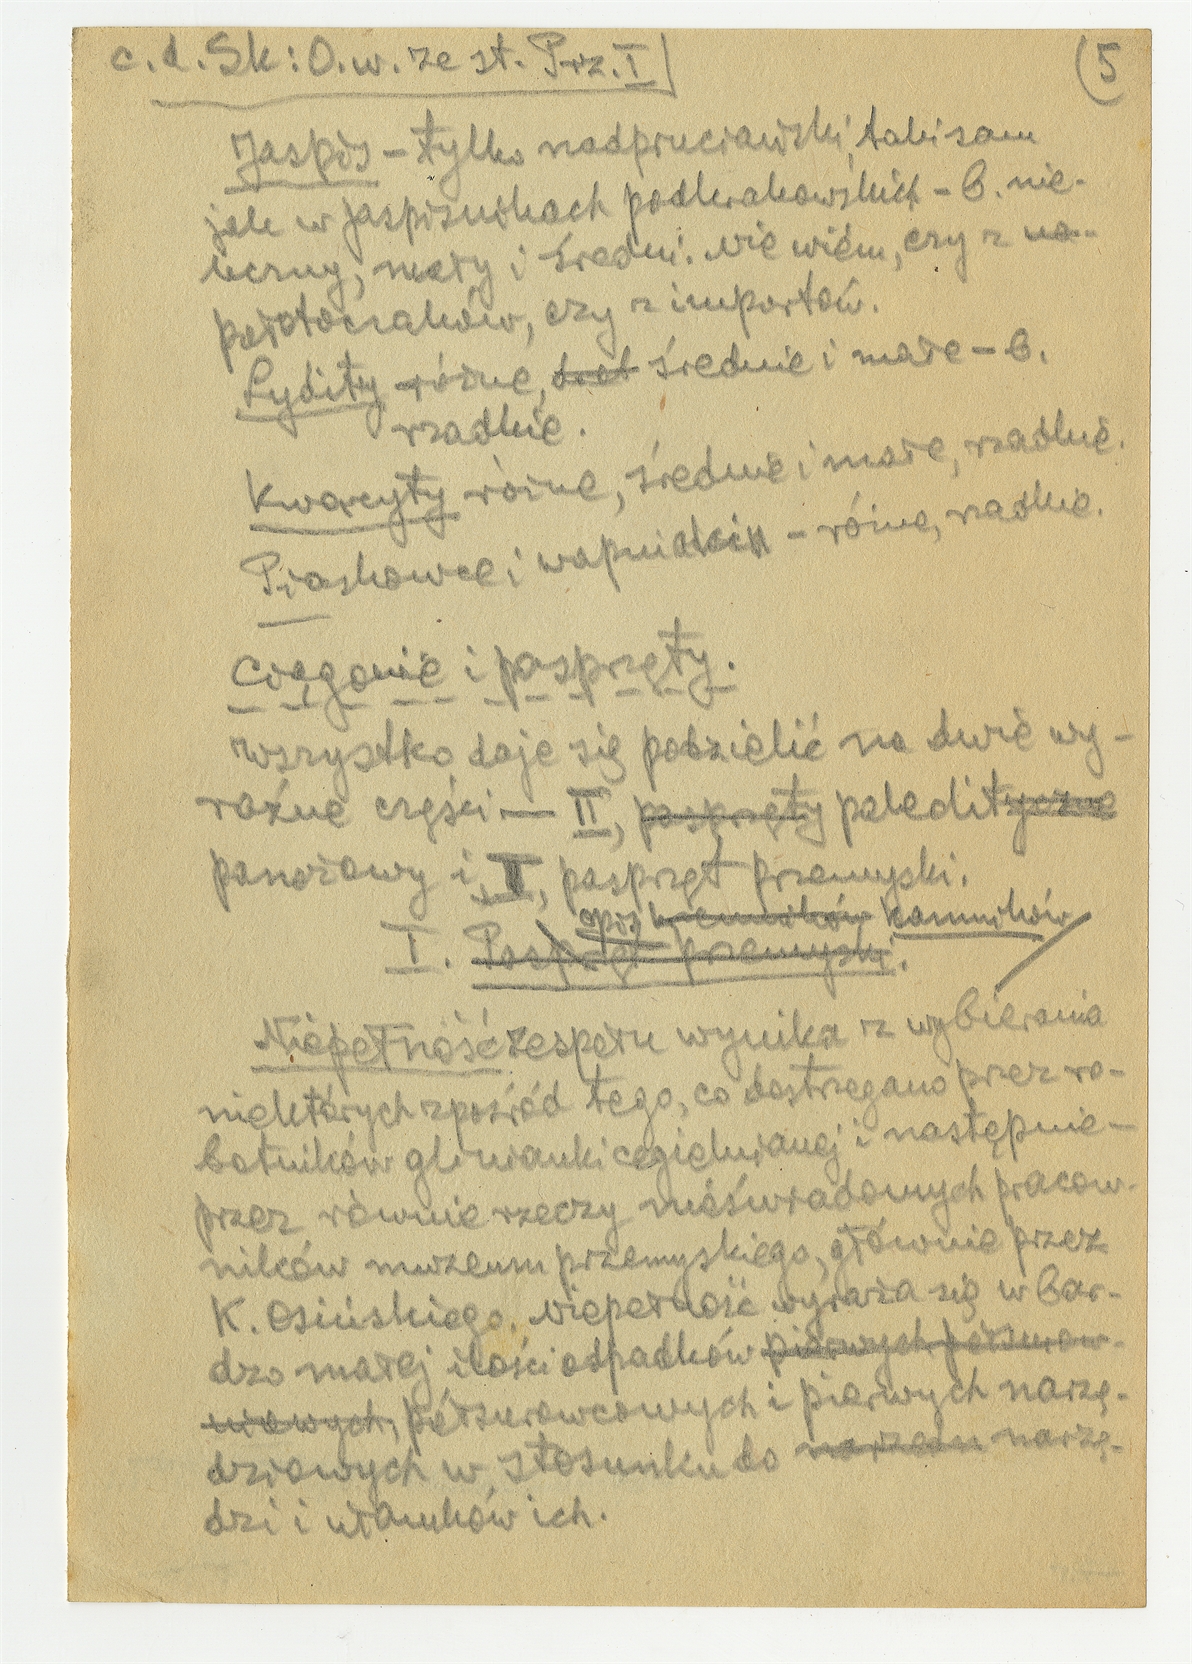 c.d. Sk: O.w. ze st. Prz. I
(5
Jaspis – tylko nadpruciawski, taki sam
jak w jaspisuikach podkrakowskich – b. nie-
liczny, mały i średni. Nie wiem, czy z na-
półotoczaków, czy z importów.
Lydity różne, średnie i małe – b.
rzadkie.
Kwarcyty różne, średnie i małe, rzadkie.
Piaskowce i wapniaki – różne, rzadkie.
Ciągonie i posprzęty.
Wszystko daje się podzielić na dwie wy-
raźne części – II, posprzęty paledityczne
panożowy i I, posprzęt przemyski.
opis kamuików kamuików
I. Posprzęt przemyski.
Niepełność zespołu wynika z wybierania
niektórych spośród tego, co dostrzegano przez ro-
botników glinianki cegielnianej i następnie –
przez równie rzeczy nieświadomych pracow-
ników muzeum przemyskiego, głównie przez
K. Osińskiego. Niepełność wyraża się w bar-
dzo małej ilości odpadków pierwych półsurow-
niowych, półsurowcowych i pierwych narzę-
dziowych w stosunku do narzędzi narzę-
dzi i ułamków ich.